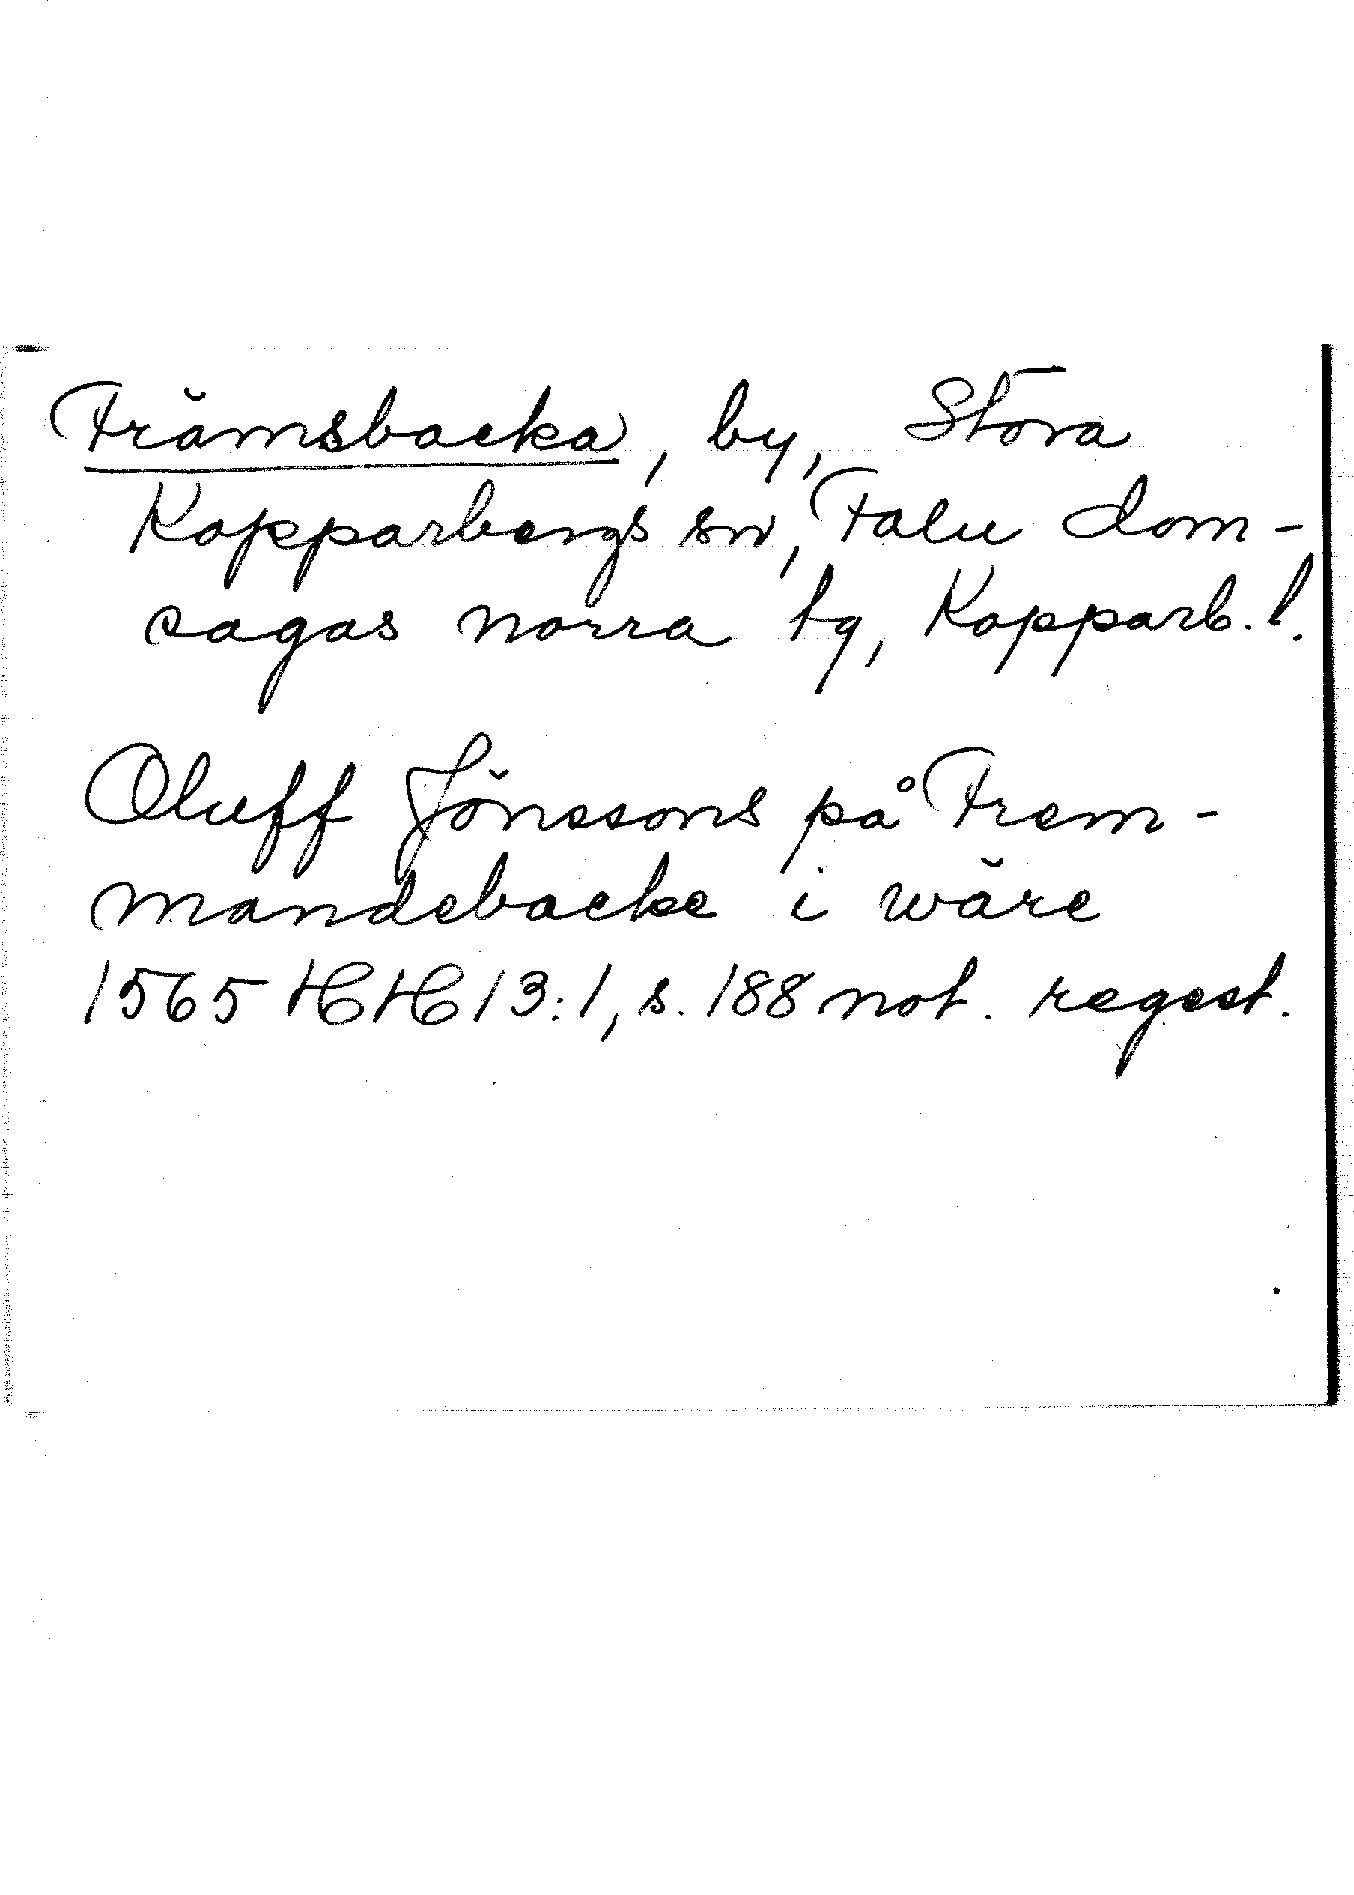 Främsbacka, by, Stora
Kopparbergs sn, Falu dom-
sagas norra tg, Kopparb. l.
Oluff Jönssons på Frem-
mandebacke i wäre
1565 HH 13:1, s. 188 not. regest.